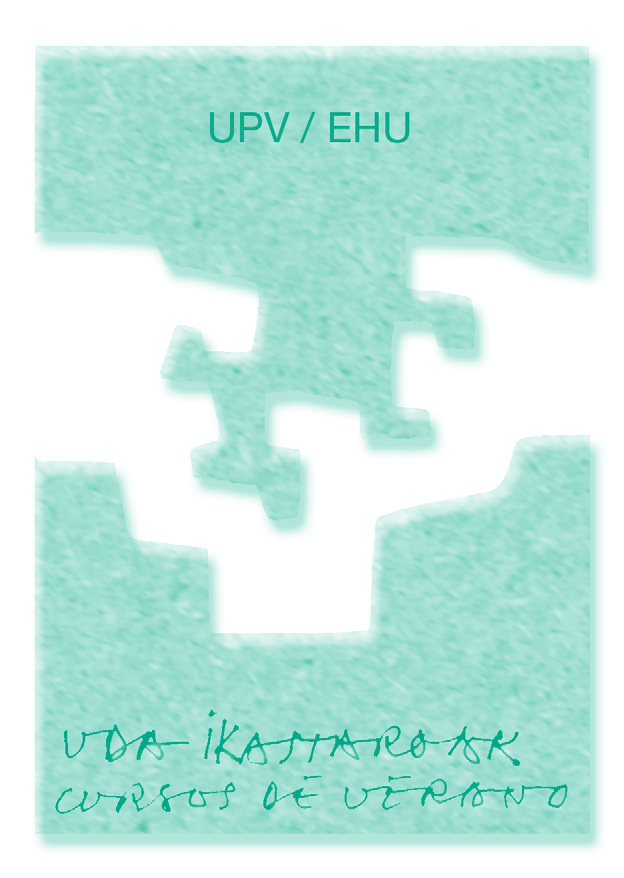 UPV / EHU
UDA IKASTAROAK
CURSOS DE VERANO